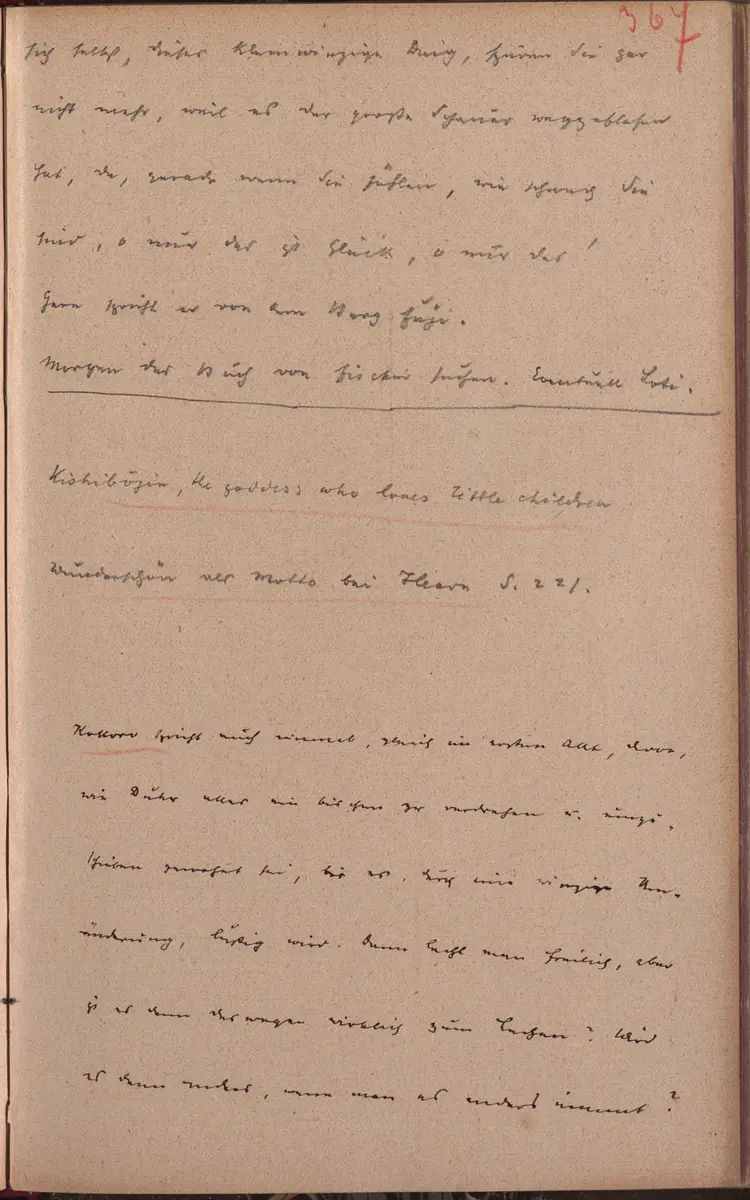 367
sich selbst, dieses kleinwinzige Ding, spüren Sie gar
nicht mehr, weil es der große Schauer weggeblasen
hat, da, gerade wenn Sie fühlen, wie schwach Sie
sind, o nur das ist Glück, o nur das!
Gern spricht er von dem Berg Fuji.
Morgen das Buch von Fischer suchen. Eventuell Loti.
Kishibōjin, the goddess who loves little children
Wunderschön als Motto bei Hearn S. 221.
Kokoro spricht auch einmal, gleich im ersten Akt, davon,
wie Duhr alles ein bischen zu verdrehen u. umzu-
schieben gewohnt sei, bis es, durch eine winzige Um-
änderung, lustig wird. Dann lacht man freilich, aber
ist es denn deswegen wirklich zum Lachen? Wird
es denn anders, wenn man es anders nimmt?